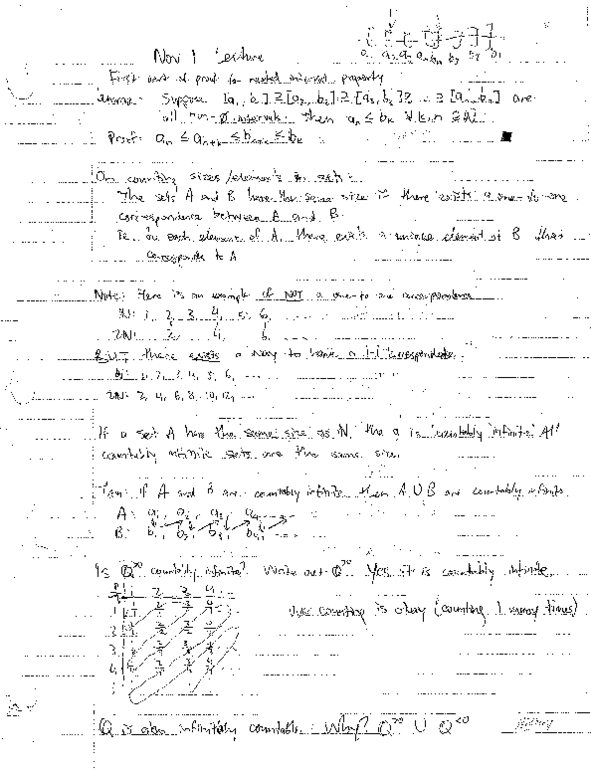 a₁ a₂ a₃ b₃ b₂ b₁
Nov 1 Lecture
First part of proof for nested interval property
Suppose [a₁, b₁] ⊇ [a₂, b₂] ⊇ [a₃, b₃] ⊇ … ⊇ [aₙ, bₙ] are
all non-∅ intervals. Then aₙ ≤ bₖ ∀ k, n
Proof: aₙ ≤ aₙ₊ₖ ≤ bₙ₊ₖ ≤ bₖ ■
On counting sizes/elements in sets:
The sets A and B have the same size if there exists a one-to-one
correspondence between A and B.
ie. for each element of A, there exists a unique element of B that
corresponds to A
Note: Here is an example of NOT a one to one correspondence
ℕ: 1, 2, 3, 4, 5, 6,
2ℕ: 2, 4, 6,
BUT there exists a way to have a 1-1 correspondence.
ℕ: 1, 2, 3, 4, 5, 6, …
2ℕ: 2, 4, 6, 8, 10, 12, …
If a set A has the same size as ℕ, the a is countably infinite. All
countably infinite sets are the same size.
If A and B are countably infinite then A ∪ B are countably infinite.
A: a₁, a₂, a₃, a₄, …
B: b₁, b₂, b₃, b₄, …
Is ℚ>0 countably infinite? Write out ℚ>0. Yes it is countably infinite.
1 2 3 4 …
1
2 counting is okay (counting 1 many times)
3
4
ℚ is also infinitely countable. Why? ℚ>0 ∪ ℚ<0